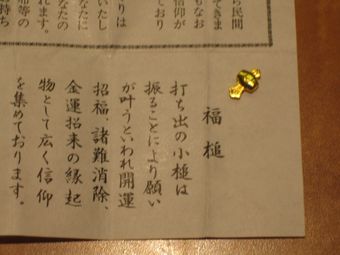 ら民間
てきま
もなお
信仰が
ており
りは
いたし
なたに
なたの
れます。
席等の
持ち
福槌
打ち出の小槌は
振ることにより願い
が叶うといわれ開運
招福、諸難消除、
金運招来の縁起
物として広く信仰
を集めております。